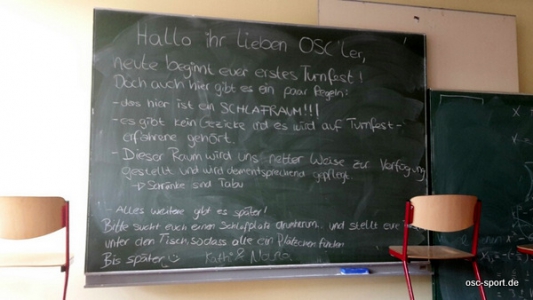 Hallo ihr lieben OSC'ler,
heute beginnt euer erstes Turnfest!
Doch auch hier gibt es ein paar Regeln:
- das hier ist ein SCHLAFRAUM!!!
- es gibt kein Gezicke und es wird auf Turnfest-
erfahrene gehört.
- Dieser Raum wird uns netter Weise zur Verfügung
gestellt und wird dementsprechend gepflegt
→ Schränke sind Tabu
- Alles weitere gibt es später!
Bitte sucht euch einen Schlafplatz drumherum und stellt eure
unter den Tisch sodass alle ein Plätzchen finden
Bis später
Kathi &
osc-sport.de